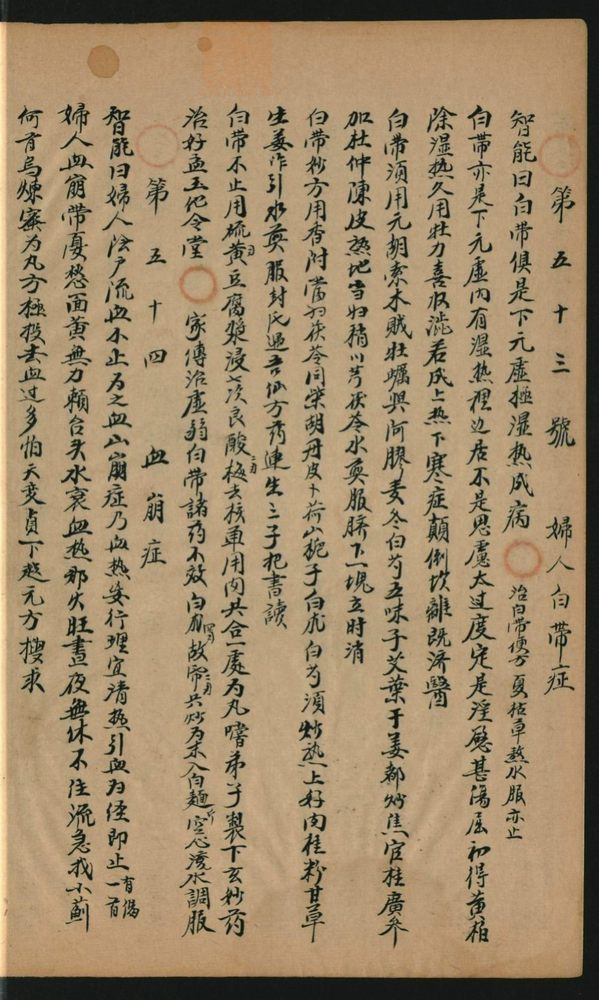 第五十三號　婦人白帶症
智能曰白帶俱是下元虛極湿热成病　治白帶便方夏枯草熬水服亦止
白帶亦是下元虛內有湿热裡边居不是思慮太过度定是淫慾甚傷屈初得黃柏
除湿热久用牡力喜收澁若成上热下寒症顛倒坎離既濟醫
白帶須用元胡索木賊牡蠣與阿膠麦冬白芍五味子艾葉干姜都炒焦官桂廣參
加杜仲陳皮熟地当归稍川芎茯苓水煎服臍下一塊立时消
白帶妙方用香附當归茯苓同柴胡丹皮卜荷山梔子白朮白芍須炒热上好肉桂粉甘草
生姜作引水煎服封氏遇吾仙方药連生三子把書讀
白帶不止用硫黃豆腐漿浸七次良酸梅去核車用肉共合一處为丸嚐弟子製下玄妙药
治好孟玉化令堂　家傳治虛弱白帶諸药不效白爪故帋共炒为末入白麵空心滚水調服
第五十四　血崩症
智能曰婦人陰户流血不止为之血山崩症乃血热妄行理宜清热引血归經即止有偈一首
婦人血崩帶憂愁面黃無力賴台头水衰血热那火旺晝夜無休不住流急找小薊
何首烏煉蜜为丸方極投去血过多怕天变貞下起元方搜求